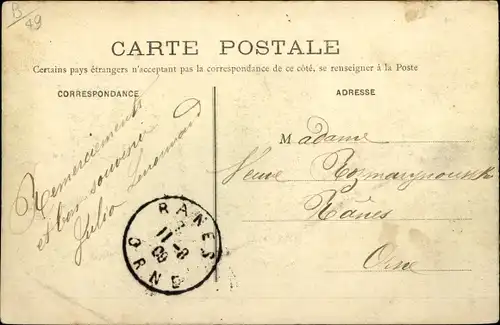 B/49
CARTE POSTALE
Certains pays étrangers n'acceptant pas la correspondance de ce côté, se renseigner à la Poste
CORRESPONDANCE
ADRESSE
Remerciements
et bon souvenir
Julia
Madame
Veuve
Rânes
Orne
RANES
11-8
08
ORNE